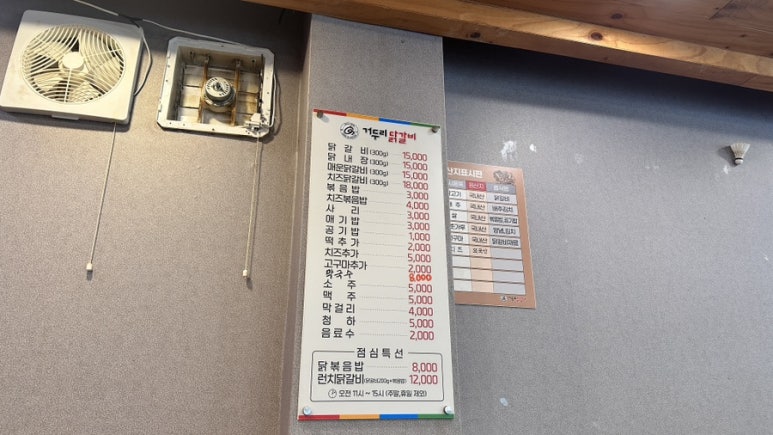 거두리 닭갈비
닭 갈 비 (300g) 15,000
닭 내 장 (300g) 15,000
매운닭갈비 (300g) 15,000
치즈닭갈비 (300g) 18,000
볶 음 밥 3,000
치즈볶음밥 4,000
사 리 3,000
애 기 밥 3,000
공 기 밥 1,000
떡 추 가 2,000
치즈추가 5,000
고구마추가 2,000
막국수 8,000
소 주 5,000
맥 주 5,000
막 걸 리 4,000
청 하 5,000
음 료 수 2,000
점심특선
닭 볶 음 밥 8,000
런치닭갈비 12,000
오전 11시 ~ 15시 (주말,휴일 제외)
산지표시판
원산지
국내산 닭갈비
국내산 배추김치
쌀 국내산
국내산
국내산